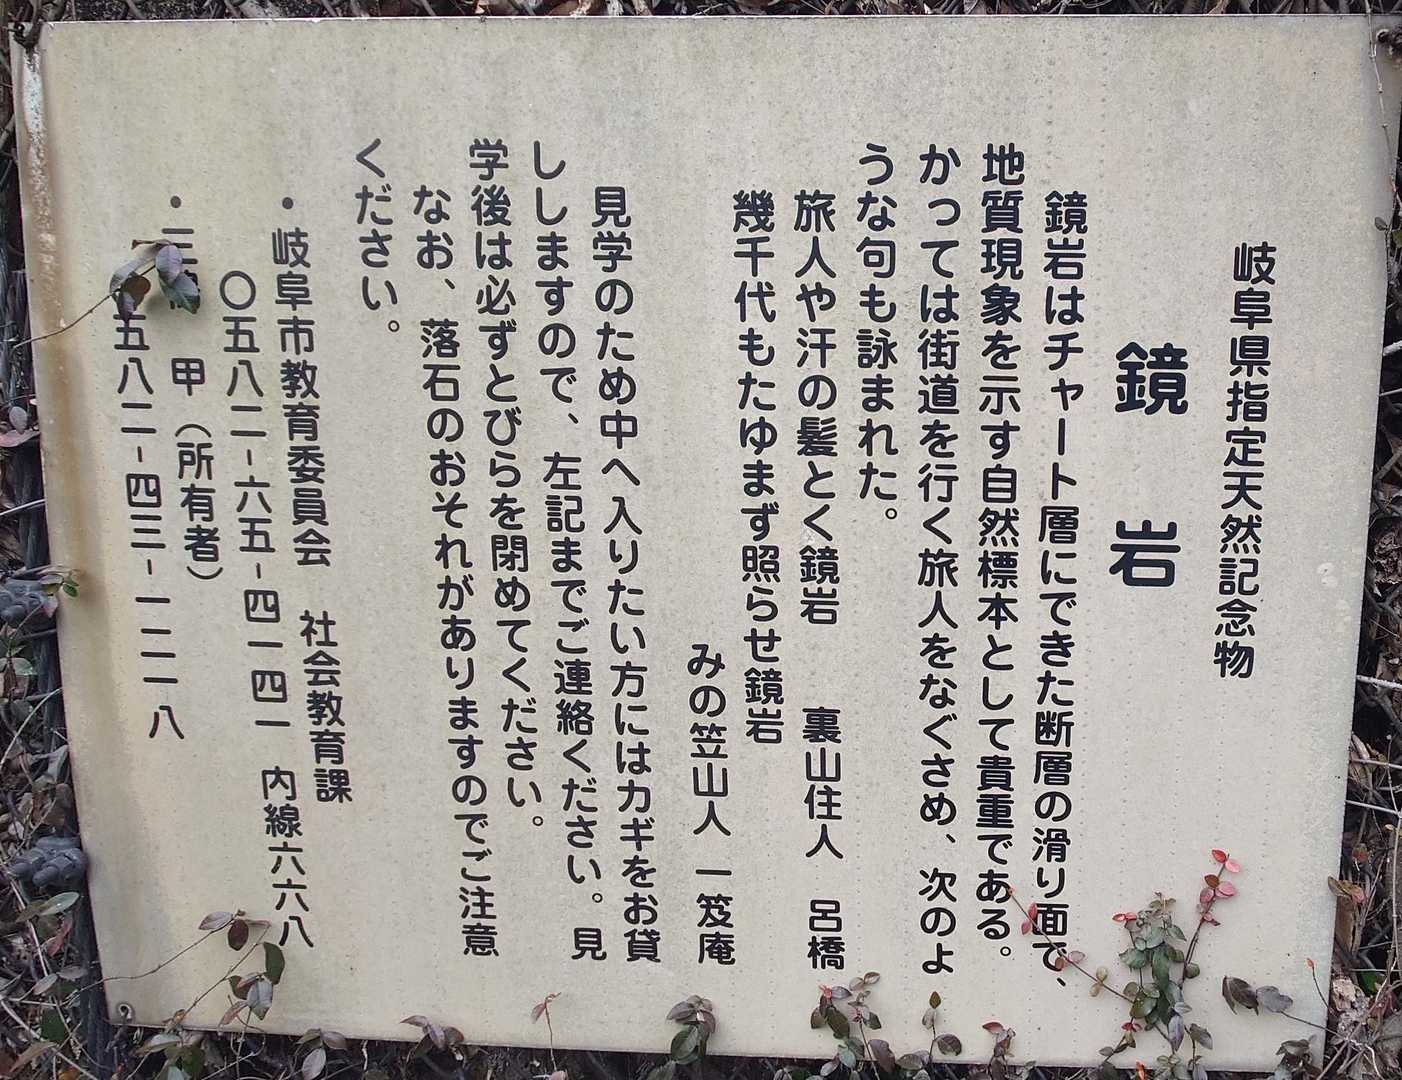 岐阜県指定天然記念物
鏡岩
鏡岩はチャート層にできた断層の滑り面で、
地質現象を示す自然標本として貴重である。
かっては街道を行く旅人をなぐさめ、次のよ
うな句も詠まれた。
旅人や汗の髪とく鏡岩 裏山住人 呂橋
幾千代もたゆまず照らせ鏡岩
みの笠山人 一笈庵
見学のため中へ入りたい方にはカギをお貸
ししますので、左記までご連絡ください。見
学後は必ずとびらを閉めてください。
なお、落石のおそれがありますのでご注意
ください。
・岐阜市教育委員会 社会教育課
〇五八二-六五-四一四一 内線六六八
・三 甲(所有者)
五八二-四三-一二一八